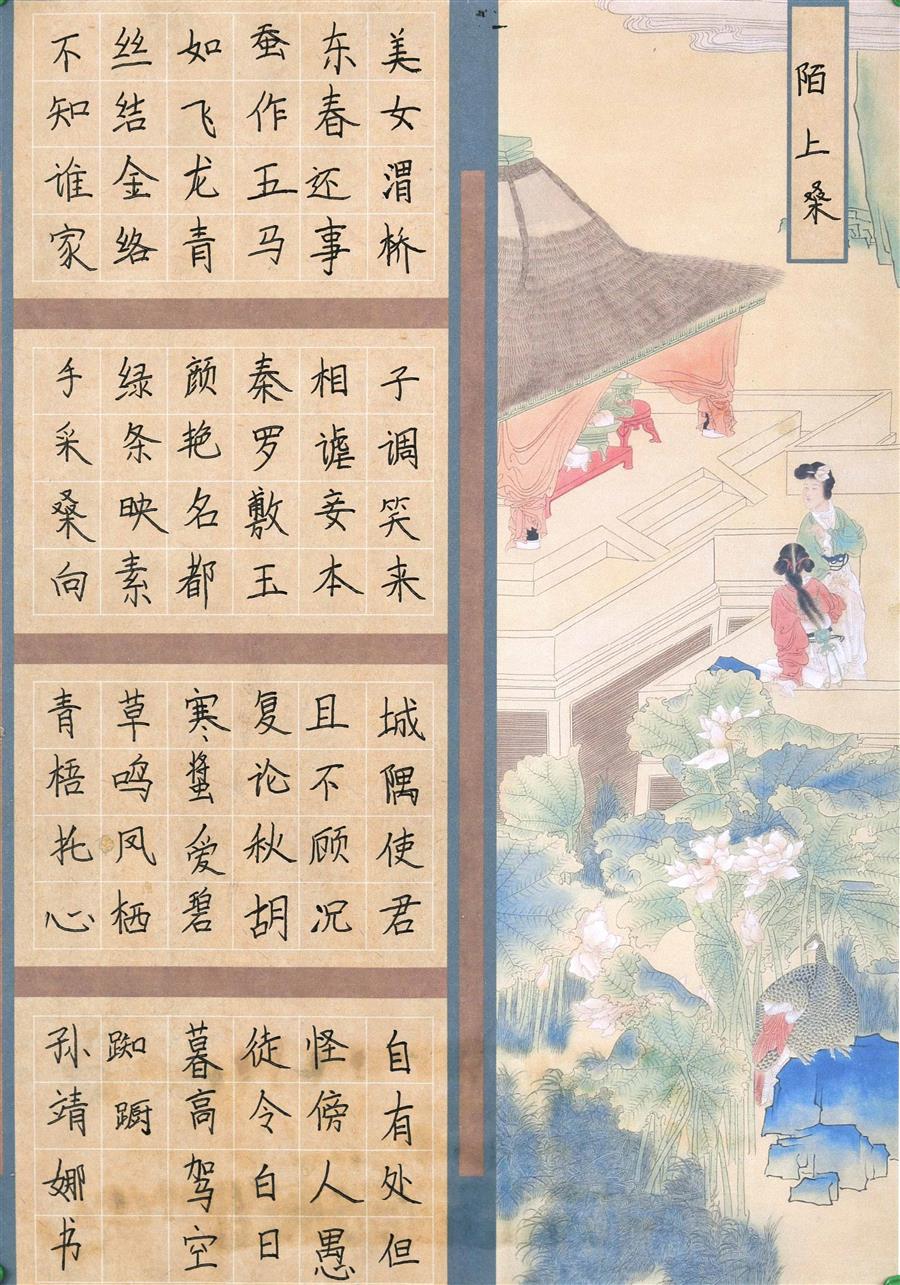 陌上桑
美女渭桥
东春还事
蚕作五马
如飞龙青
丝结金络
不知谁家
子调笑来
相谑妾本
秦罗敷玉
颜艳名都
绿条映素
手采桑向
城隅使君
且不顾况
复论秋胡
寒螀爱碧
草鸣凤栖
青梧托心
自有处但
怪傍人愚
徒令白日
暮高驾空
踟蹰
孙靖娜书